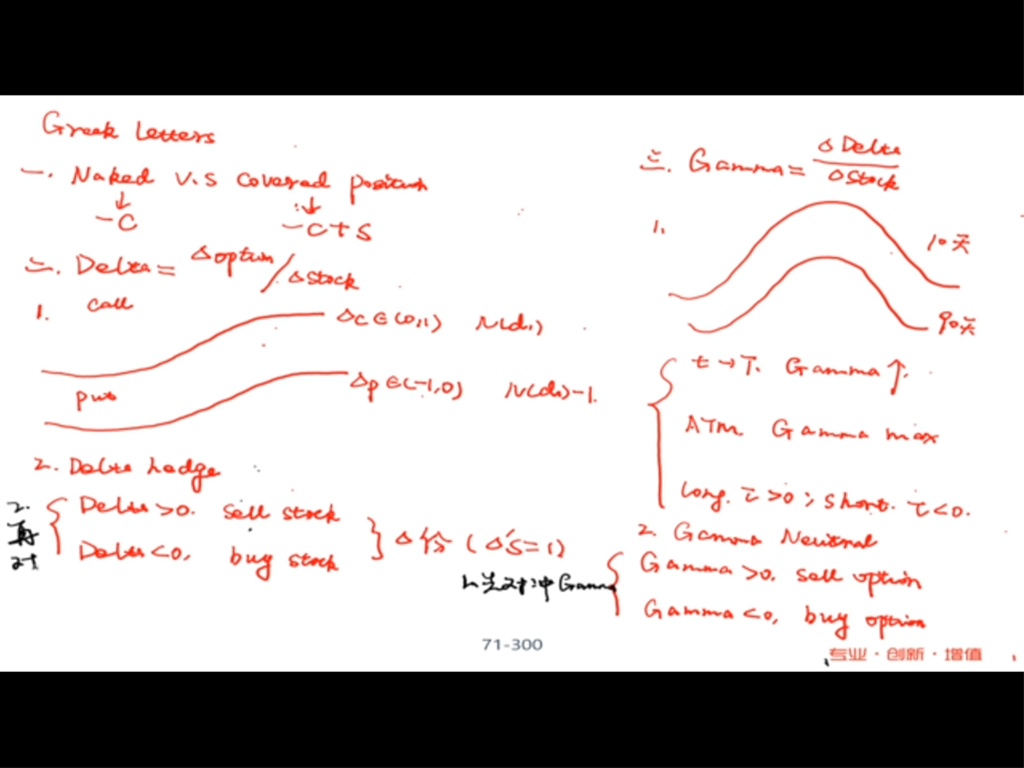 Greek Letters
一. Naked V.S covered position
↓ ↓
-C -C+S
二. Delta = Δoption/Δstock
1. call
Δc∈(0,1) N(d₁)
put
Δp∈(-1,0) N(d₁)-1.
2. Delta hedge
Delta>0. sell stock
Delta<0, buy stock
Δ份 (Δs=1)
2. 再对
三. Gamma = ΔDelta/ΔStock
1.
10天
90天
t→T. Gamma↑.
ATM. Gamma max
long. τ>0; short. τ<0.
2. Gamma Neutral
1.先对冲Gamma
Gamma>0. sell option
Gamma<0, buy option
71-300
专业·创新·增值